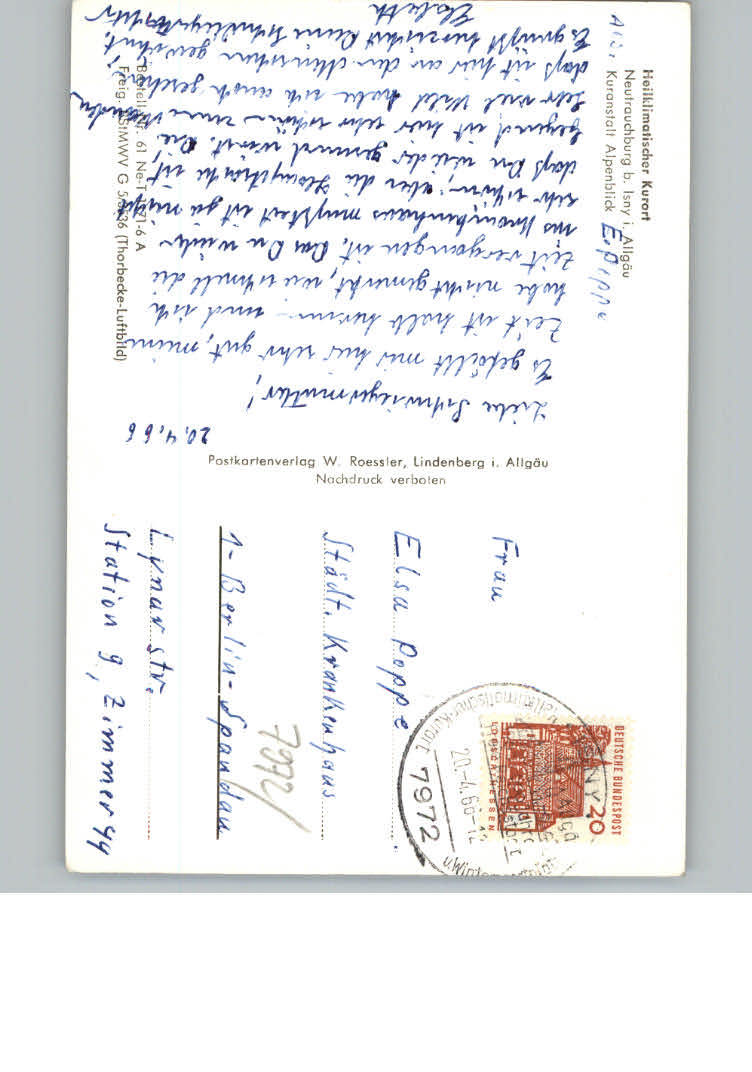 Heilklimatischer Kurort
Neutrauchburg b. Isny i. Allgäu
Kuranstalt Alpenblick
Abs. E. Poppe
20.4.66
Liebe Schwiegermutter!
Es gefällt mir hier sehr gut, meine
Zeit ist halb herum und ich
habe nicht gemerkt, wie schnell die
Zeit vergangen ist. Das Du wieder
ins Krankenhaus mußtest ist ja nicht
sehr schön, aber die Hauptsache ist,
das Du wieder gesund wirst. Die
Gegend ist hier sehr schön
sehr viel Wald habe ich auch gesehen,
das ist hier an den Menschen gewöhnt.
Es grüßt herzlichst Deine Schwiegertochter
Elsbeth
Bestell-Nr. 61 Ne-T 1571-6 A
Freig. (Thorbecke-Luftbild)
Postkartenverlag W. Roessler, Lindenberg i. Allgäu
Nachdruck verboten
DEUTSCHE BUNDESPOST
20
LORSCH/HESSEN
7972 ISNY
20.-4.66-12
Heilklimatischer Kurort
Frau
Elsa Poppe
Städt. Krankenhaus
1-Berlin-Spandau
Lynarstr.
Station 9, Zimmer 44
7972